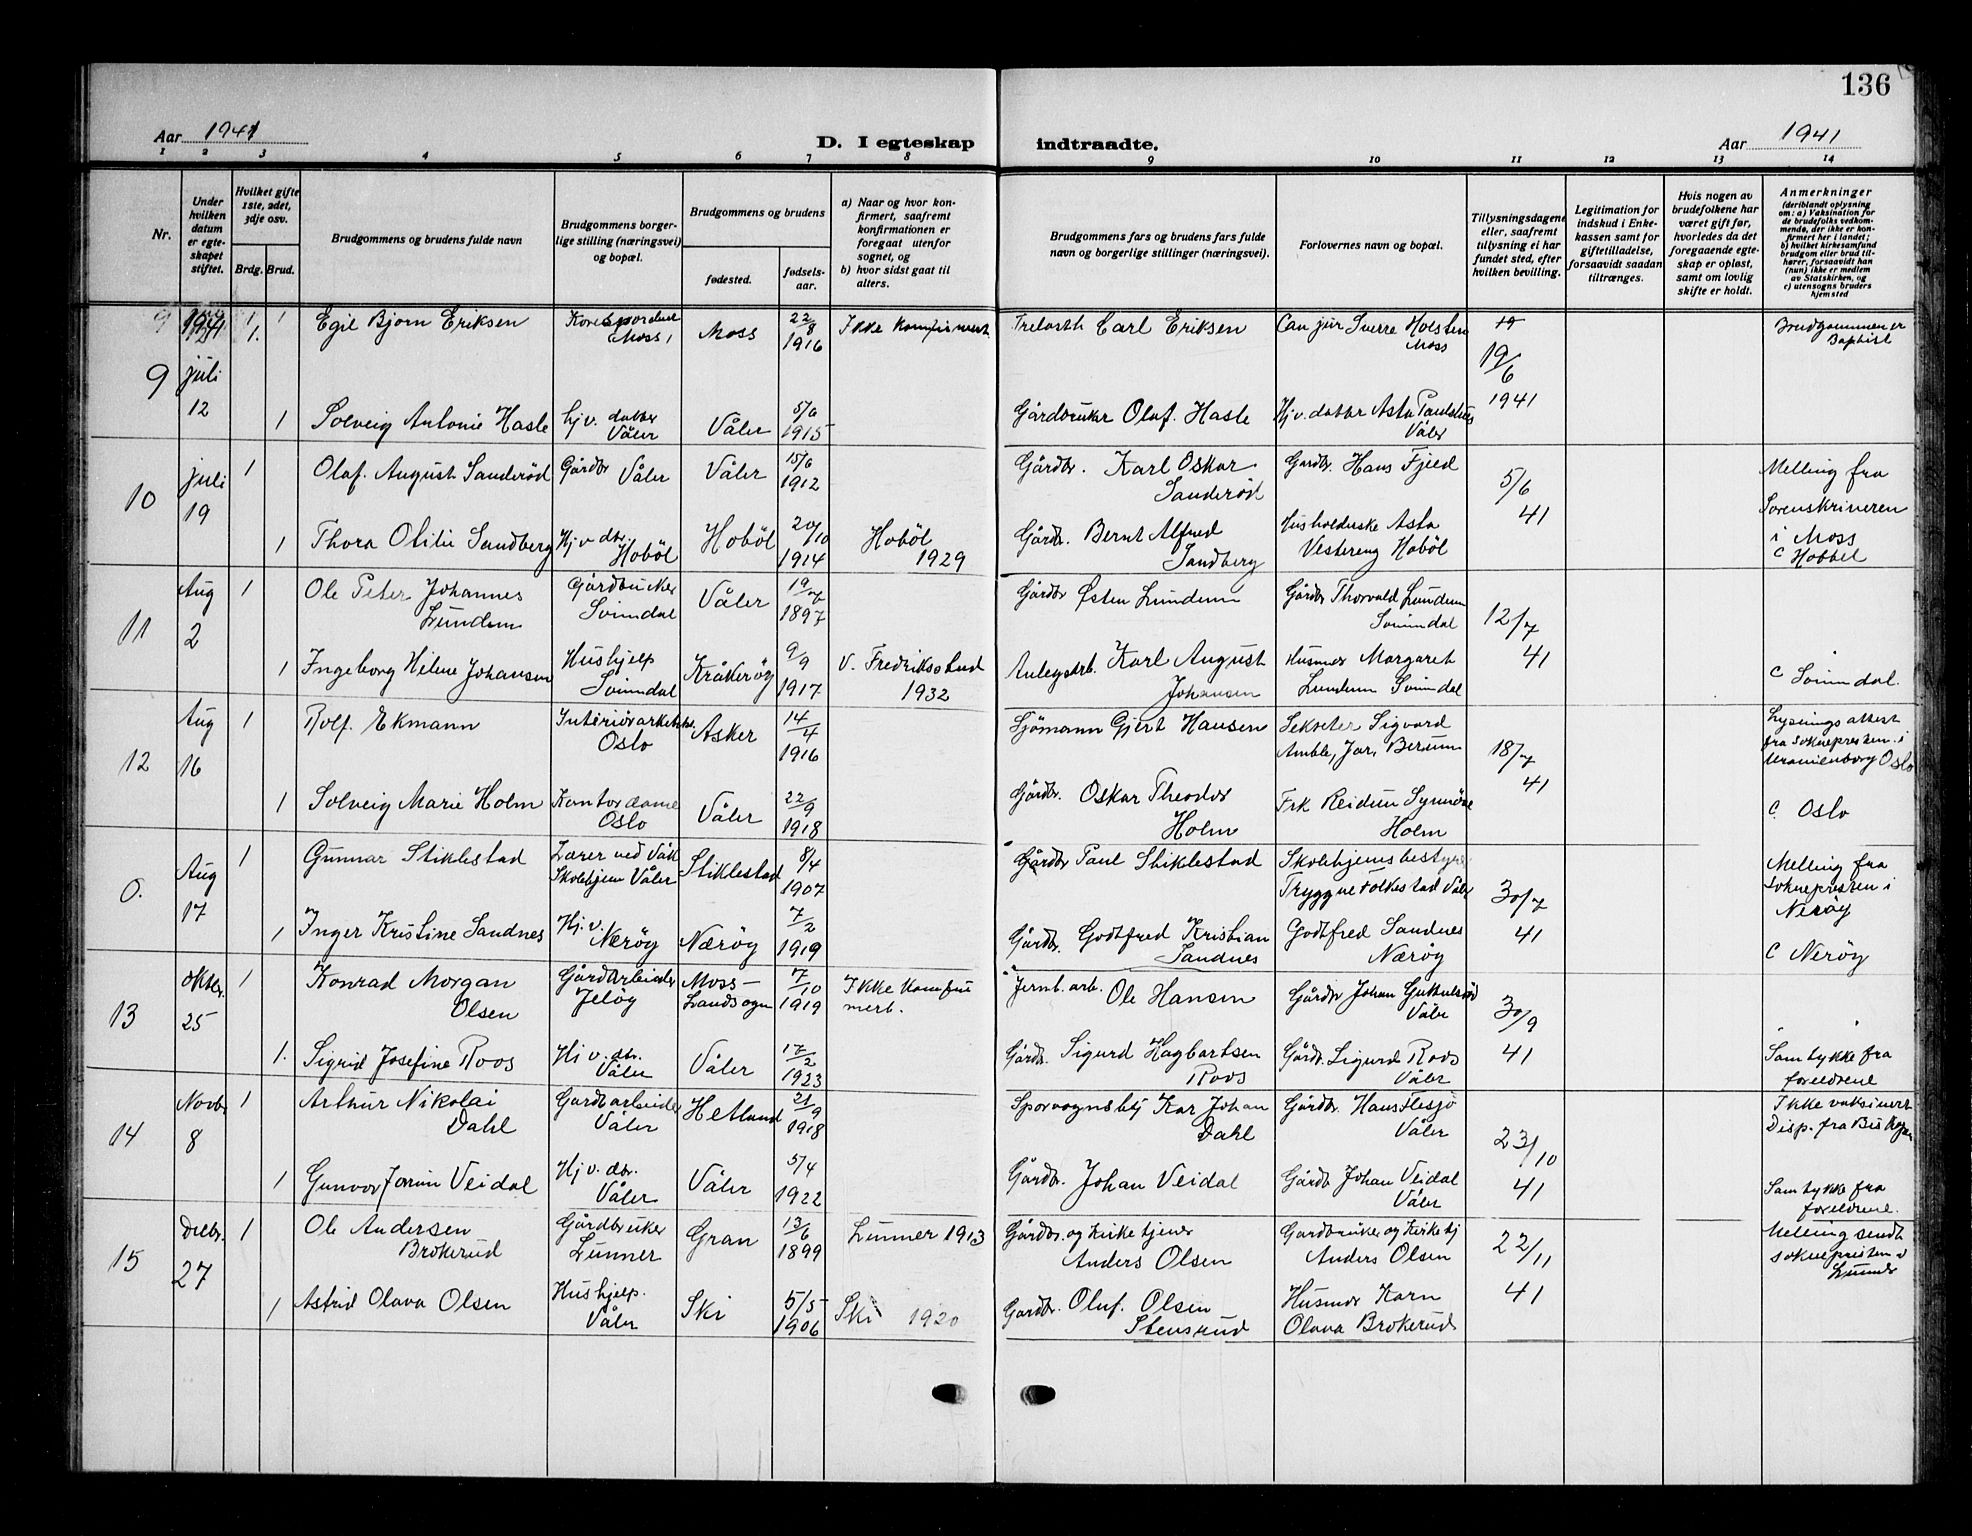 136
Aar 1941
D. I egteskap
indtraadte.
Aar 1941
1 2 3 4 5 6 7 8 9 10 11 12 13 14
Nr.
Under hvilken datum er egteskapet stiftet.
Hvilket gifte 1ste, 2det, 3dje osv.
Brdg. Brud.
Brudgommens og brudens fulde navn
Brudgommens borgerlige stilling (næringsvei) og bopæl.
Brudgommens og brudens
fødested.
fødselsaar.
a) Naar og hvor konfirmert, saafremt konfirmationen er foregaat utenfor sognet, og
b) hvor sidst gaat til alters.
Brudgommens fars og brudens fars fulde navn og borgerlige stillinger (næringsvei).
Forlovernes navn og bopæl.
Tillysningsdagene eller, saafremt tillysning ei har fundet sted, efter hvilken bevilling.
Legitimation for indskud i Enkekassen samt for giftetilladelse, forsaavidt saadan tiltrænges.
Hvis nogen av brudefolkene har været gift før, hvorledes da det foregaaende egteskap er opløst, samt om lovlig skifte er holdt.
Anmerkninger
(deriblandt oplysning om: a) Vaksination for de brudefolks vedkommende, der ikke er konfirmert her i landet; b) hvilket kirkesamfund brudgom eller brud tilhører, forsaavidt han (hun) ikke er medlem av Statskirken, og c) utensogns bruders hjemsted
9 juli 12 1 Egil Bjørn Eriksen Moss Moss 22/8 1916 Ikke konfirmert Carl Eriksen Can jur Sverre Holsten Moss 19/6 1941 Brudgommen er Baptist
1 Solveig Antonie Hasle Hj v. datter Våler Våler 5/6 1915 Gårdbruker Olaf Hasle Hj v. datter Asta Våler
10 juli 19 1 Olaf August Sanderød Gårdbr Våler Våler 15/6 1912 Gårdbr. Karl Oskar Sanderød Gardbr. Hans Fjeld 5/6 41 Melling fra Sorenskriveren i Moss
1 Thora Otilie Sandberg Hj v dtr. Hobøl Hobøl 20/10 1914 Hobøl 1929 Gårdb. Bernt Alfred Sandberg Husholderske Asta Vestereng Hobøl c Hobbel
11 Aug 2 1 Ole Peter Johannes Lundem Gårdbruker Svinndal Våler 19/7 1897 Gårdbr Østen Lundem Gårdbr Thorvald Lundem Svinndal 12/7 41
1 Ingeborg Helene Johansen Hushjelp Svinndal Kråkerøy 9/9 1917 V. Fredrikstad 1932 Anlegsarb. Karl August Johansen Husmor Margaret Lundem Svinndal c Svinndal.
12 Aug 16 1 Rolf Ekmann Interiørarkitekt Oslo Asker 14/4 1916 Sjømann Gjert Hansen Sekretær Sigvard Amble, Jar, Berum 18/7 41 Lysnings attest fra soknepresten i Uranienborg Oslo
1 Solveig Marie Holm Kontordame Oslo Våler 22/9 1918 Gårdbr. Oskar Theodor Holm Frk Reidun Synnøve Holm c. Oslo
0. Aug 17 1 Gunnar Stiklestad Lærer ved Våk Skolehjem Våler Stiklestad 8/4 1907 Gårdbr Paul Stiklestad Skolehjemsbestyrer Tryggve Folkestad Våler 30/7 41 Melling fra soknepresten i Nerøy
1 Inger Kristine Sandnes Hj. v. Nærøy Nærøy 7/2 1919 Gårdbr. Godtfred Kristian Sandnes Godtfred Sandnes Nærøy c Nerøy
13 oktbr. 25 1 Konrad Morgan Olsen Gårdarbeider Jeløy Moss Landsogn 7/10 1919 Ikke konfirmert. Jernb. arb. Ole Hansen Gårdbr Johan Våler 30/9 41
1. Sigrid Josefine Roos Hj v. dtr. Våler Våler 17/2 1923 Gårdbr. Sigurd Hagbartsen Roos Gårdbr. Sigurd Roos Våler Samtykke fra foreldrene
14 Novbr 8 1 Arthur Nikolai Dahl Gardsarbeider Våler Hetland 21/9 1918 Sporvognsbetj Kar Johan Dahl Gårdbr. Hans Flesjø Våler 23/10 41 Ikke vaksinert Disp. fra Biskopen
1 Gunvor Jorunn Veidal Hj v. dtr. Våler Våler 5/4 1922 Gårdbr. Johan Veidal Gårdbr Johan Veidal Våler Samtykke fra foreldrene.
15 Desbr. 27 1 Ole Andersen Brokerud Gårdbruker Lunner Gran 13/6 1899 Lunner 1913 Gårdbr. og Kirketjener Anders Olsen Gardbruker og Kirketj Anders Olsen 22/11 41 Melling sendt soknepristen i Lunner
1 Astrid Olava Olsen Hushjelp. Våler Ski 5/5 1906 Ski 1920 Gardbr. Oluf Olsen Stensrud Husmor Karn Olava Brokerud